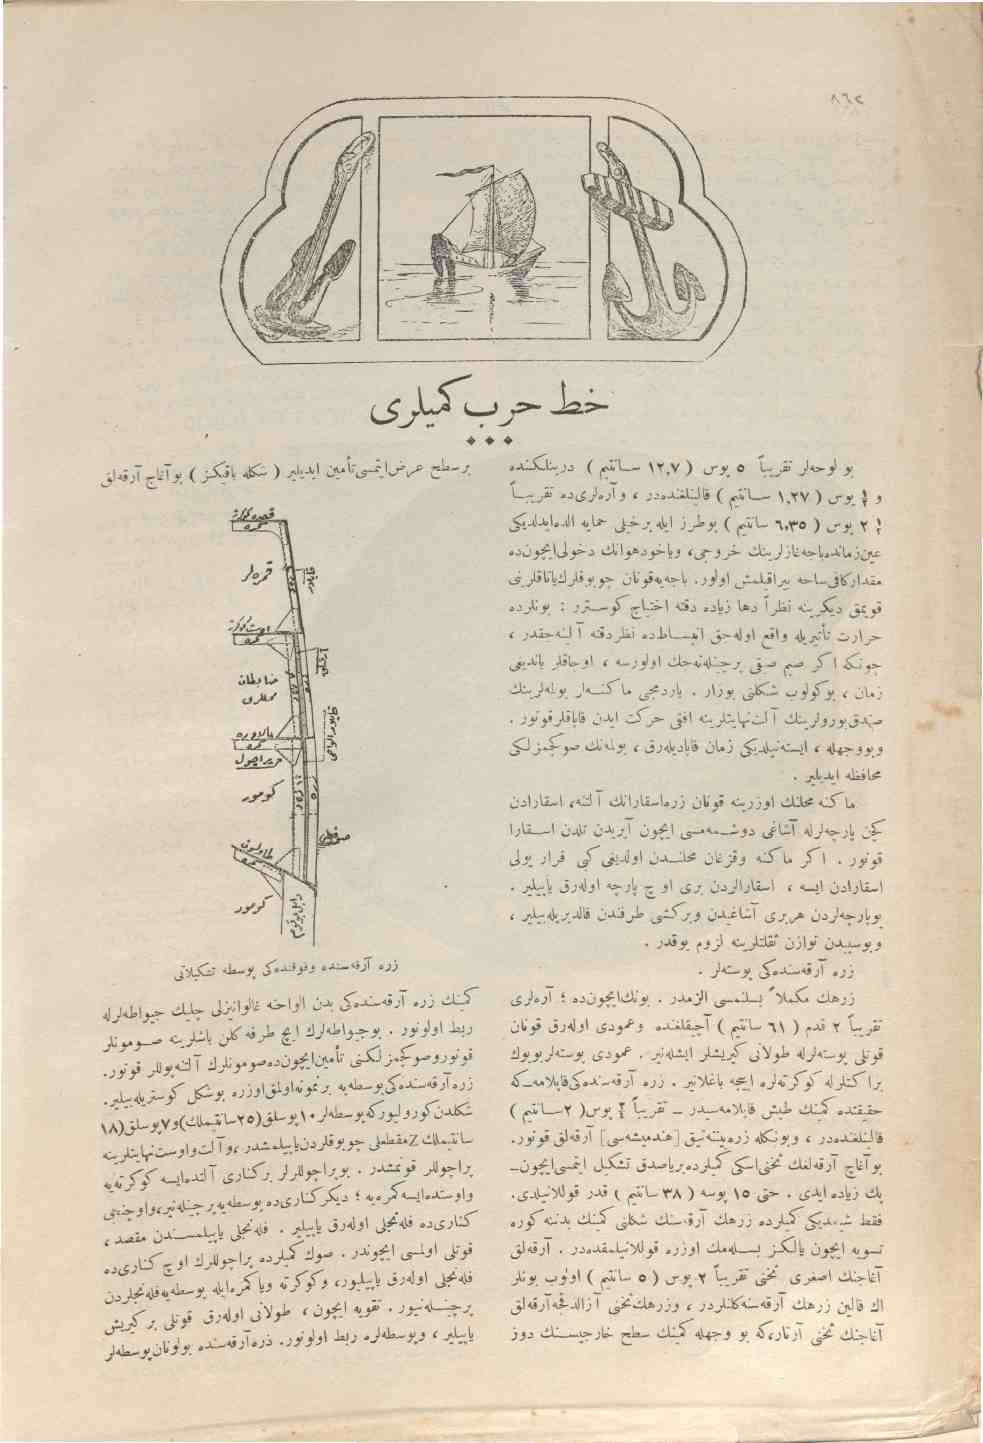 ٨٦٢
خط حرب كميلرى
بو لوحه‌لر تقريباً ٥ پوس ( ١٢,٧ سانتيم ) درينلكنده
و ½ پوس ( ١,٢٧ سانتيم ) قالينلغنده‌در ، و آره‌لرى‌ده تقريباً
٢ ½ پوس ( ٦,٣٥ سانتيم ) بو طرز ايله برخيلى حمايه الده‌ايدلديكى
عين زمانده باجه غازلرينك خروجى، وياخود هوانك دخولى ايچون‌ده
مقدار كافى ساحه بيراقيلمش اولور. باجه‌يه قونان چوبوقلرك ياتاقلرينى
قويمق ديكرينه نظراً دها زياده دقته احتياج كوسترر : بونلرده
حرارت تأثيريله واقع اوله‌جق انبساطده نظر دقته آلنه‌جقدر ،
چونكه اكر صيم صيقى پرچينله‌نه‌جك اولورسه ، اوجاقلر ياندينى
زمان ، بوكولوب شكلنى بوزار . ياردمجى ماكنه‌لر بولمه‌لرينك
صندق بورولرينك آلت نهايتلرينه افقى حركت ايدن قاپاقلر قونور .
وبووجهله ، ايسته‌نيلديكى زمان قاپاديله‌رق ، بولمه‌نك صو كچمزلكى
محافظه ايديلير .
ماكنه محلنك اوزرينه قونان زره اسقارانك آلتنه، اسقارادن
كچن پارچه‌لرله آشاغى دوشمه‌مسى ايچون آيريدن تلدن اسقارا
قونور . اكر ماكنه وقزغان محلندن اولديغى كبى فرار يولى
اسقارادن ايسه ، اسقارالردن برى اوچ پارچه اوله‌رق ياپيلير .
بوپارچه‌لردن هربرى آشاغيدن وبركشى طرفندن قالديريله‌بيلير ،
وبوسببدن توازن ثقلتلرينه لزوم يوقدر .
زره آرقه‌سنده‌كى پوسته‌لر .
زرهك مكملاً بسلنمسى الزمدر . بونك ايچون‌ده ؛ آره‌لرى
تقريباً ٢ قدم ( ٦١ سانتيم ) آچيقلغنده وعمودى اوله‌رق قونان
قوتلى پوسته‌لرله طولانى كيريشلر ايشله‌نير. عمودى پوسته‌لر بويوك
براكتلرله كوكرته‌لره اييجه باغلانير . زره آرقه‌سنده‌كى قابلامه‌ـ كه
حقيقتده كمينك طيش قابلامه‌سيدر ـ تقريباً ¾ پوس( ٢ سانتيم )
قالنلغنده‌در ، وبونكله زره بيننه تيق [ هند ميشه‌سى ] آرقه‌لق قونور.
بو آغاج آرقه‌لغك ثخنى اسكى كميلرده برياصدق تشكيل ايتمسى ايچون ـ
پك زياده ايدى . حتى ١٥ پوسه ( ٣٨ سانتيم ) قدر قوللانيلدى.
فقط شيمديكى كميلرده زرهك آرقه‌سنك شكلنى كمينك بدننه كوره
تسويه ايچون يالكز بسله‌مك اوزره قوللانيلمقده‌در . آرقه‌لق
آغاجنك اصغرى ثخنى تقريباً ٢ پوس ( ٥ سانتيم ) اولوب بونلر
اك قالين زرهك آرقه‌سنه كلنلردر ، وزرهك ثخنى آزالدقجه آرقه‌لق
آغاجنك ثخنى آرتار، كه بو وجهله كمينك سطح خارجيسنك دوز
برسطح عرض ايتمسى تأمين ايديلير ( شكله باقيكز ) بو آغاج آرقه‌لق
قمره‌لر
ضابطان
محللرى
كومور
كومور
زره آرقه‌سنده وفوقنده‌كى پوسطه تشكيلاتى
كمينك زره آرقه‌سنده‌كى بدن الواحنه غالوانيزلى چليك جيواطه‌لرله
ربط اولونور . بوجيواطه‌لرك ايچ طرفه كلن باشلرينه صومونلر
قونور وصو كچمزلكنى تأمين ايچون‌ده صومونلرك آلتنه پوللر قونور.
زره آرقه‌سنده‌كى پوسطه‌يه بر نمونه اولمق اوزره بو شكل كوستريله‌بيلير.
شكلدن كورولييوركه پوسطه‌لر ١٠ پوسلق (٢٥ سانتيملك) و ٧ پوسلق (١٨
سانتيملك Z مقطعلى چوبوقلردن ياپيلمشدر ، و آلت واوست نهايتلرينه
پراچوللر قونمشدر . بو پراچوللر بر كنارى آلتده ايسه كوكرته‌يه
واوستده ايسه كمره‌يه ؛ ديكر كنارى‌ده پوسطه‌يه پرچينله‌نير، و اوچنجى
كنارى‌ده فله‌نجلى اوله‌رق ياپيلير . فله‌نجلى ياپيلمسندن مقصد ،
قوتلى اولمسى ايچوندر . صوك كميلرده پراچوللرك اوچ كنارى‌ده
فله‌نجلى اوله‌رق ياپيليور، وكوكرته وياكمره ايله پوسطه‌يه فله‌نجلردن
پرچينله‌نيور . تقويه ايچون ، طولانى اوله‌رق قوتلى بر كيريش
ياپيلير ، وپوسطه‌لره ربط اولونور. زره آرقه‌سنده بولونان پوسطه‌لر